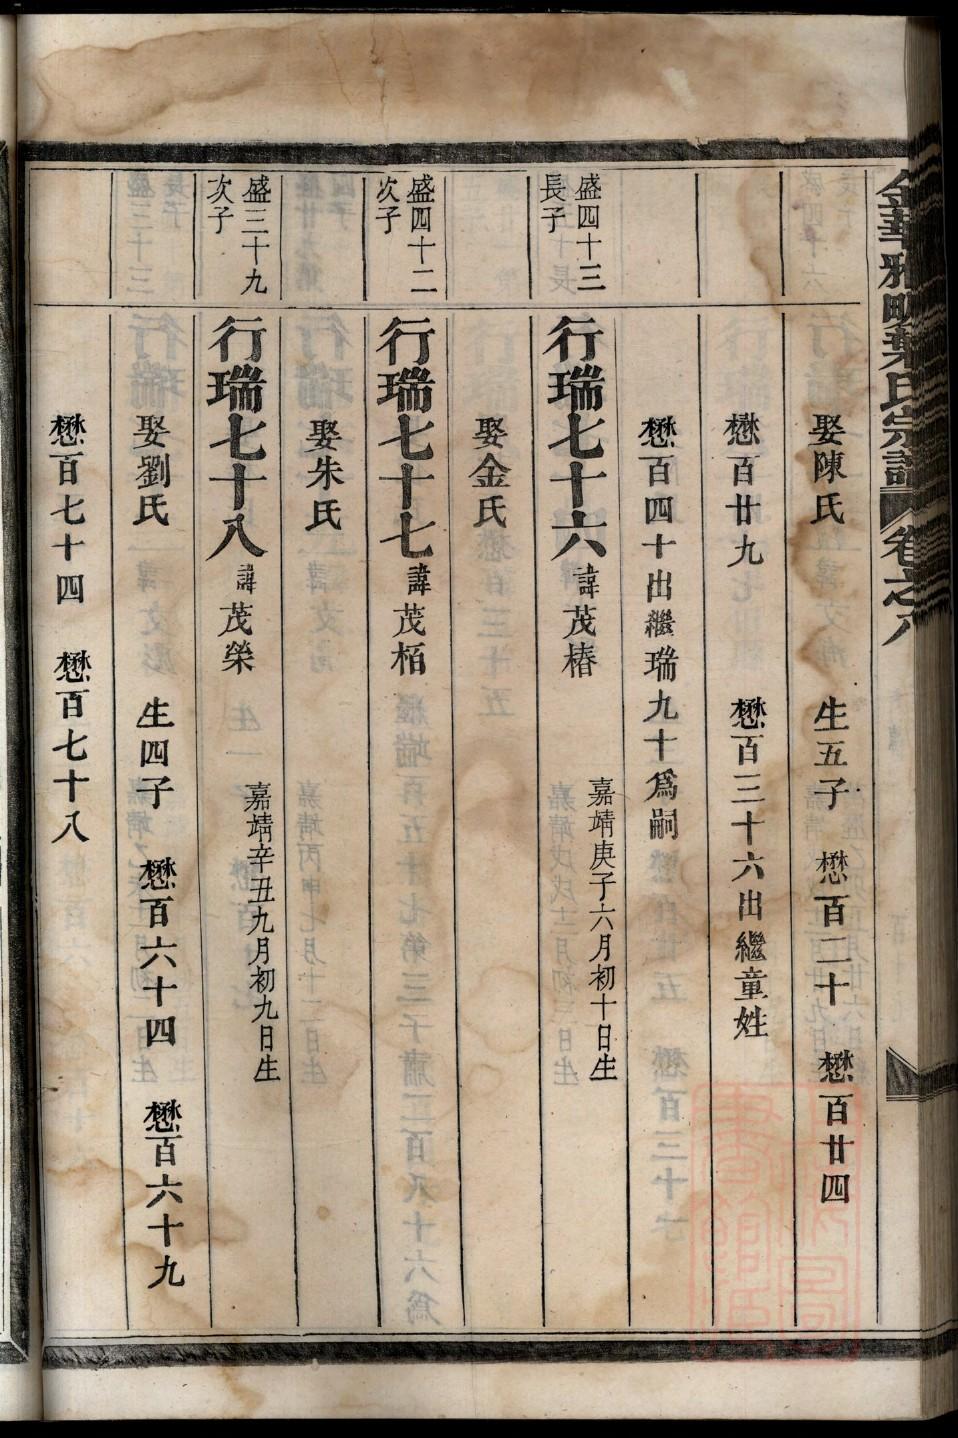 金華雅畈葉氏宗譜 卷之八
娶陳氏 生五子 懋百二十 懋百廿四
懋百廿九 懋百三十六出繼童姓
懋百四十出繼瑞九十爲嗣
盛四十三
長子
行瑞七十六 諱茂椿 嘉靖庚子六月初十日生
娶金氏
盛四十二
次子
行瑞七十七 諱茂栢
娶朱氏
盛三十九
次子
行瑞七十八 諱茂榮 嘉靖辛丑九月初九日生
娶劉氏 生四子 懋百六十四 懋百六十九
懋百七十四 懋百七十八